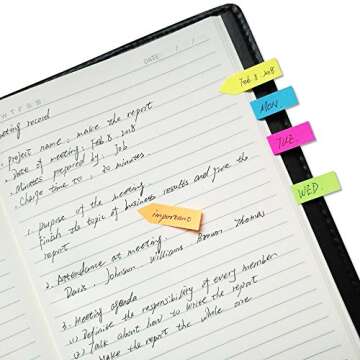 M T W T F S S
DATE
Feb 8 2018
eeting record
MON
. Project name : make the report
. Date of meeting : Feb 8 2018
TUE
. Minutes prepared by : Job
. Charge time to : 20 minutes
WED.
1. Purpose of the meeting
Finish the topic of business results and give the
report
important
2. Attendance at meeting
Davis . Johnson Williams Brown Thomas
3. Meeting agenda
1) Definise the responsibility of every member
2) Talk about how to write the report
Make the report the whole one